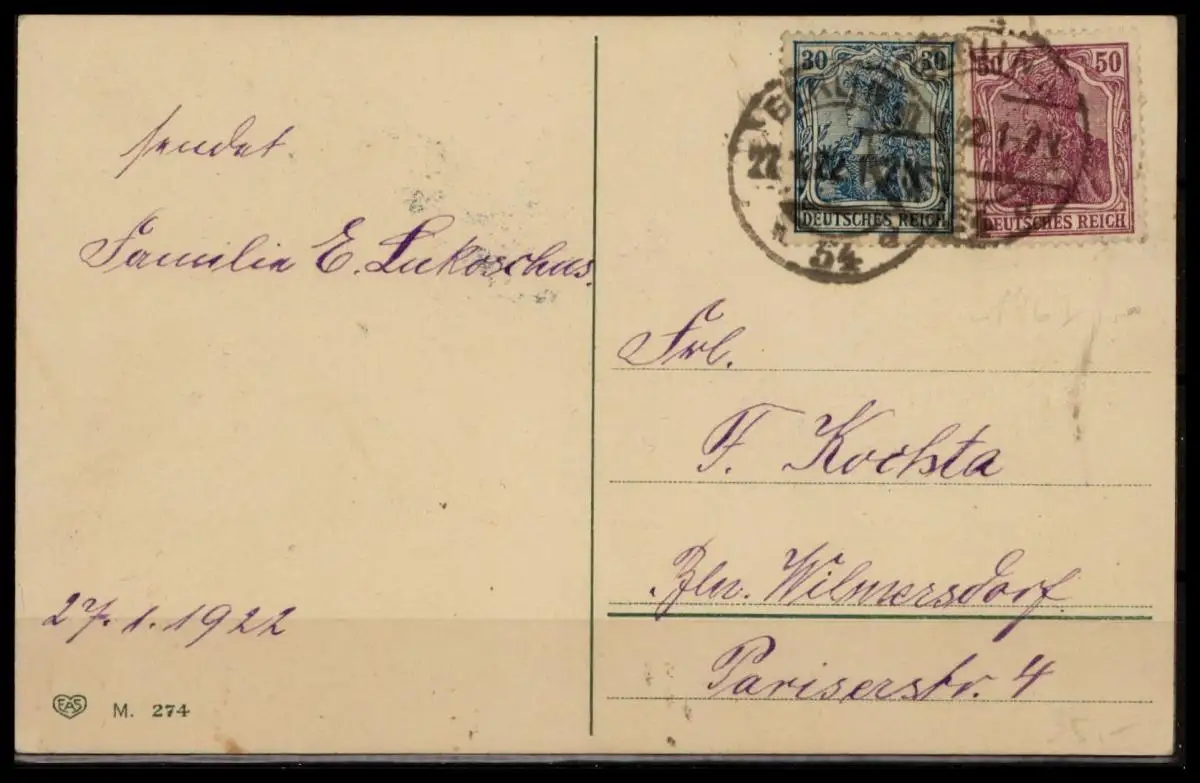 sendet
Familie E. Lukoschus.
27.1.1922
EAS
M. 274
30 30
DEUTSCHES REICH
50 50
DEUTSCHES REICH
BERLIN
54
Frl.
F. Kochta
Bln. Wilmersdorf
Pariserstr. 4